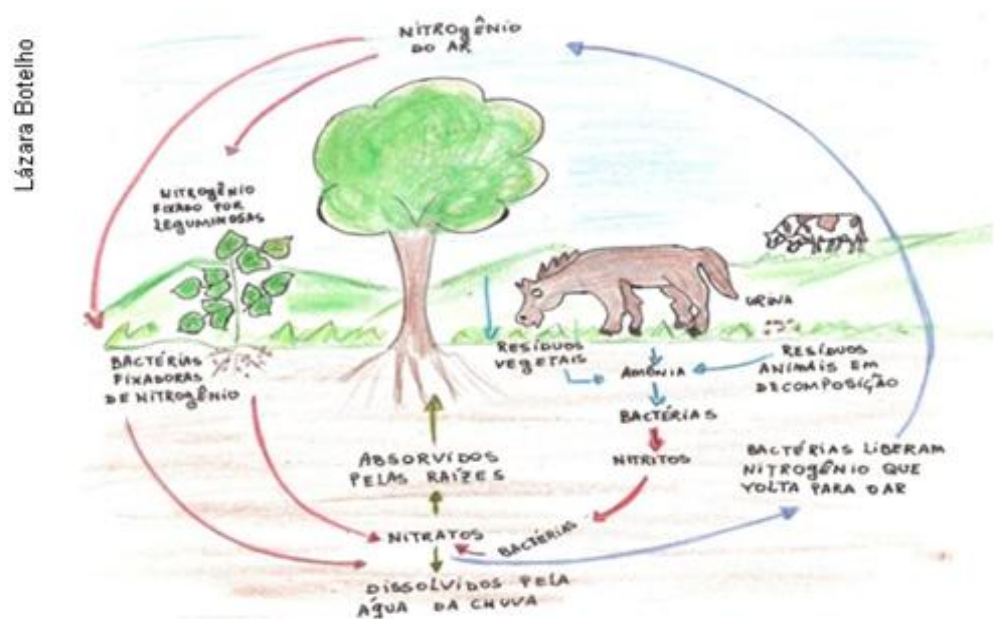 Lázara Botelho
NITROGÊNIO
DO AR
NITROGÊNIO
FIXADO POR
LEGUMINOSAS
URINA
BACTÉRIAS
FIXADORAS
DE NITROGÊNIO
RESÍDUOS
VEGETAIS
AMÔNIA
RESÍDUOS
ANIMAIS EM
DECOMPOSIÇÃO
BACTÉRIAS
NITRITOS
BACTÉRIAS LIBERAM
NITROGÊNIO QUE
VOLTA PARA O AR
ABSORVIDOS
PELAS RAÍZES
NITRATOS
BACTÉRIAS
DISSOLVIDOS PELA
ÁGUA DA CHUVA